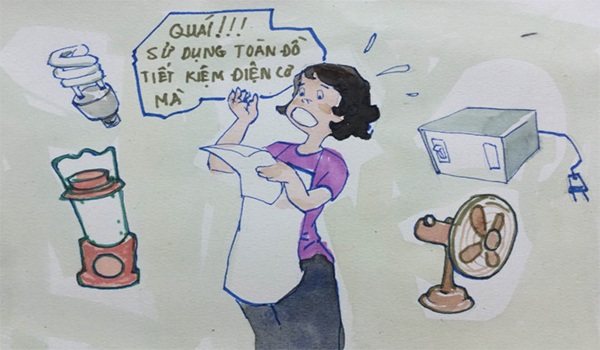 QUÁI!!!
SỬ DỤNG TOÀN ĐỒ
TIẾT KIỆM ĐIỆN CƠ
MÀ